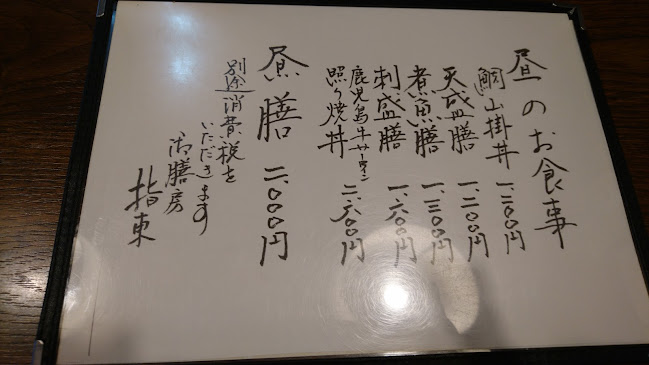 昼のお食事
鯛山掛丼 一、二〇〇円
天盛膳 一、二〇〇円
煮魚膳 一、三〇〇円
刺盛膳 一、六〇〇円
鹿児島牛サーロイン
照り焼丼 二、六〇〇円
昼膳 二、〇〇〇円
別途消費税を
いただきます
御膳房
指東